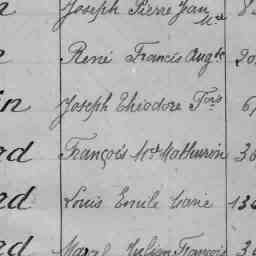 Joseph Pierre Jean Mie
René Francis Augte 20
in Joseph Théodore Fois 6
rd François Mie Mathurin 36
rd Louis Emile Marie 134
rd Julien François 3